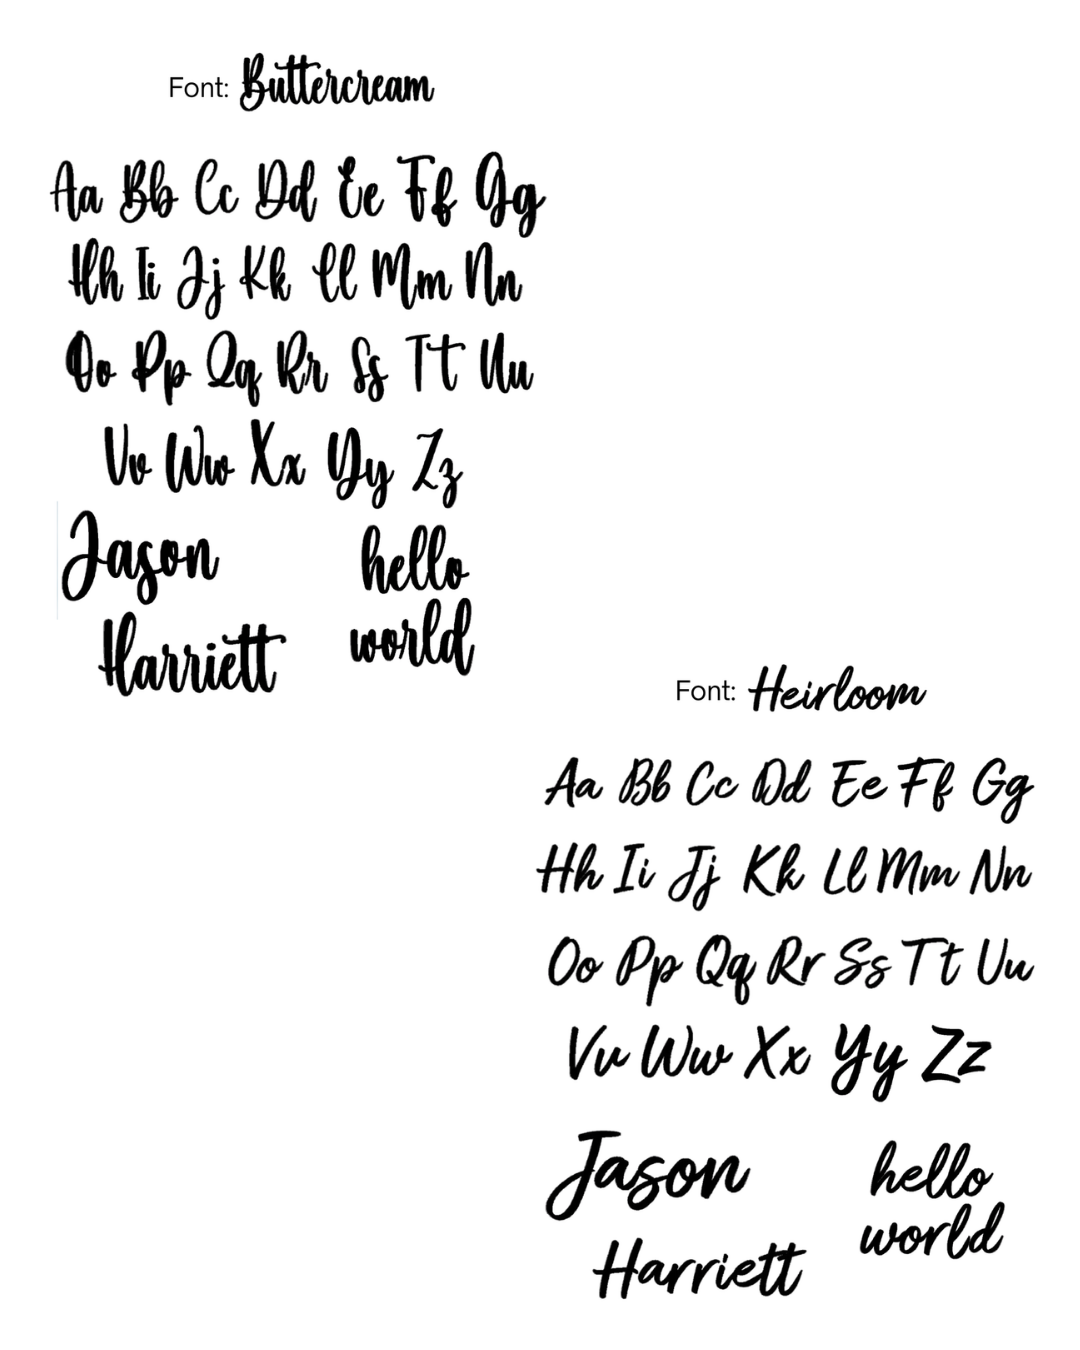 Font: Buttercream
Aa Bb Cc Dd Ee Ff Gg
Hh Ii Jj Kk Ll Mm Nn
Oo Pp Qq Rr Ss Tt Uu
Vv Ww Xx Yy Zz
Jason
hello
world
Harriett
Font: Heirloom
Aa Bb Cc Dd Ee Ff Gg
Hh Ii Jj Kk Ll Mm Nn
Oo Pp Qq Rr Ss Tt Uu
Vv Ww Xx Yy Zz
Jason
hello
world
Harriett